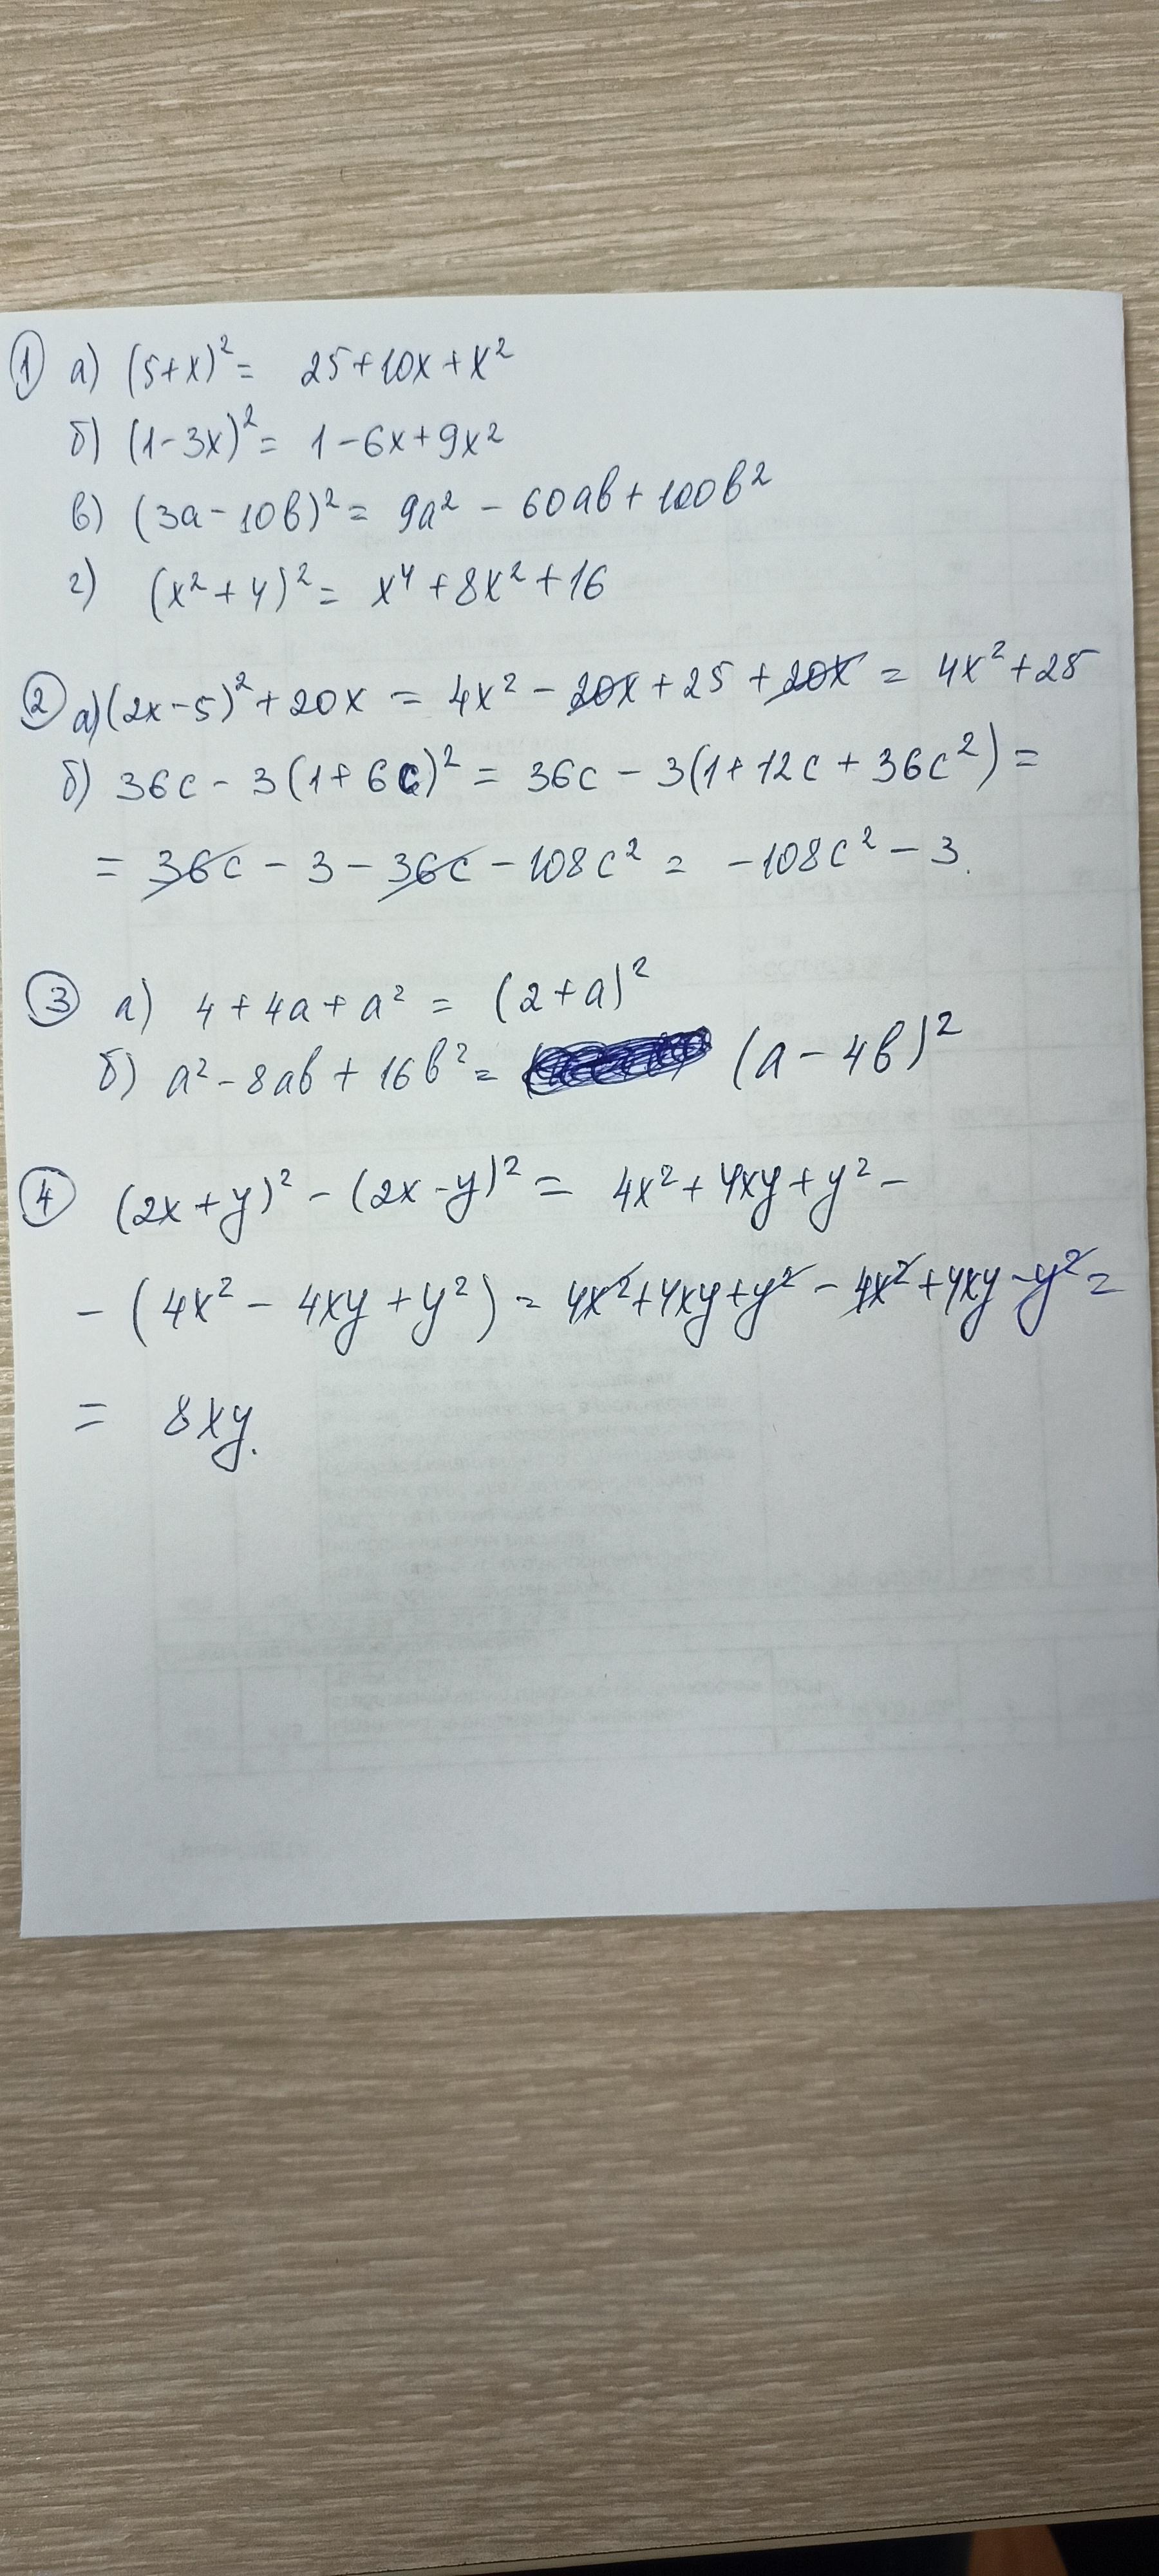 ① а) (5+x)² = 25+10x+x²
б) (1-3x)² = 1-6x+9x²
в) (3a-10b)² = 9a² - 60ab + 100b²
г) (x²+4)² = x⁴+8x²+16
② а) (2x-5)²+20x = 4x² - 20x + 25 + 20x = 4x²+25
б) 36c - 3(1+6c)² = 36c - 3(1+12c+36c²) =
= 36c - 3 - 36c - 108c² = -108c² - 3.
③ а) 4+4a+a² = (2+a)²
б) a²-8ab+16b² = (a-4b)²
④ (2x+y)² - (2x-y)² = 4x²+4xy+y² -
- (4x² - 4xy + y²) = 4x²+4xy+y² - 4x²+4xy-y² =
= 8xy.